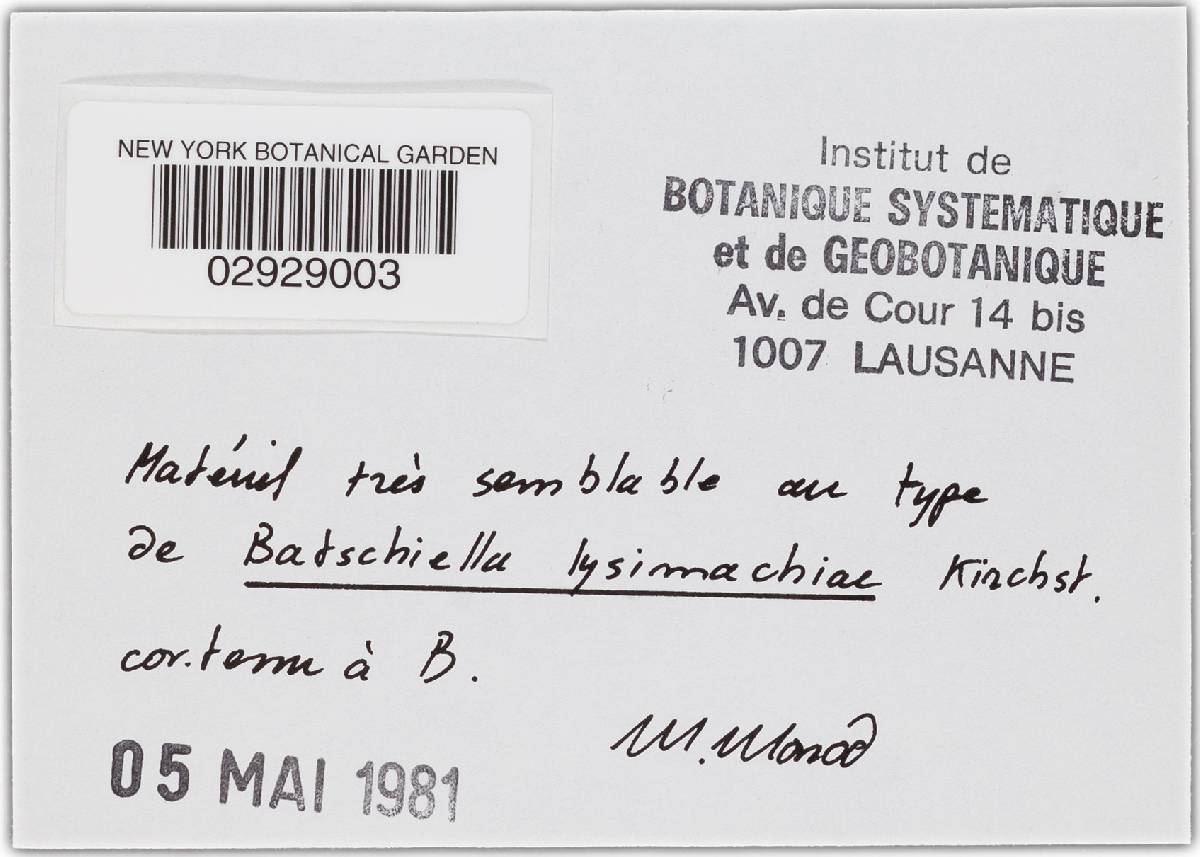 NEW YORK BOTANICAL GARDEN
02929003
Institut de
BOTANIQUE SYSTEMATIQUE
et de GEOBOTANIQUE
Av. de Cour 14 bis
1007 LAUSANNE
Matériel très semblable au type
de Batschiella lysimachiae Kirchst.
contenu à B.
M. Monod
05 MAI 1981